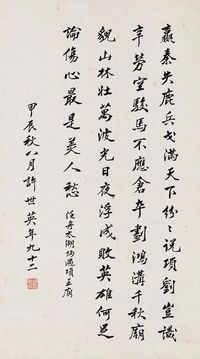 嬴秦失鹿兵戈滿天下紛〻說項劉豈識
辛勞空駿馬不應倉卒劃鴻溝千秋廟
貌山林壯萬波光日夜浮成敗英雄何足
論傷心最是美人愁 泛舟太湖均過項王廟
甲辰秋八月許世英年九十二